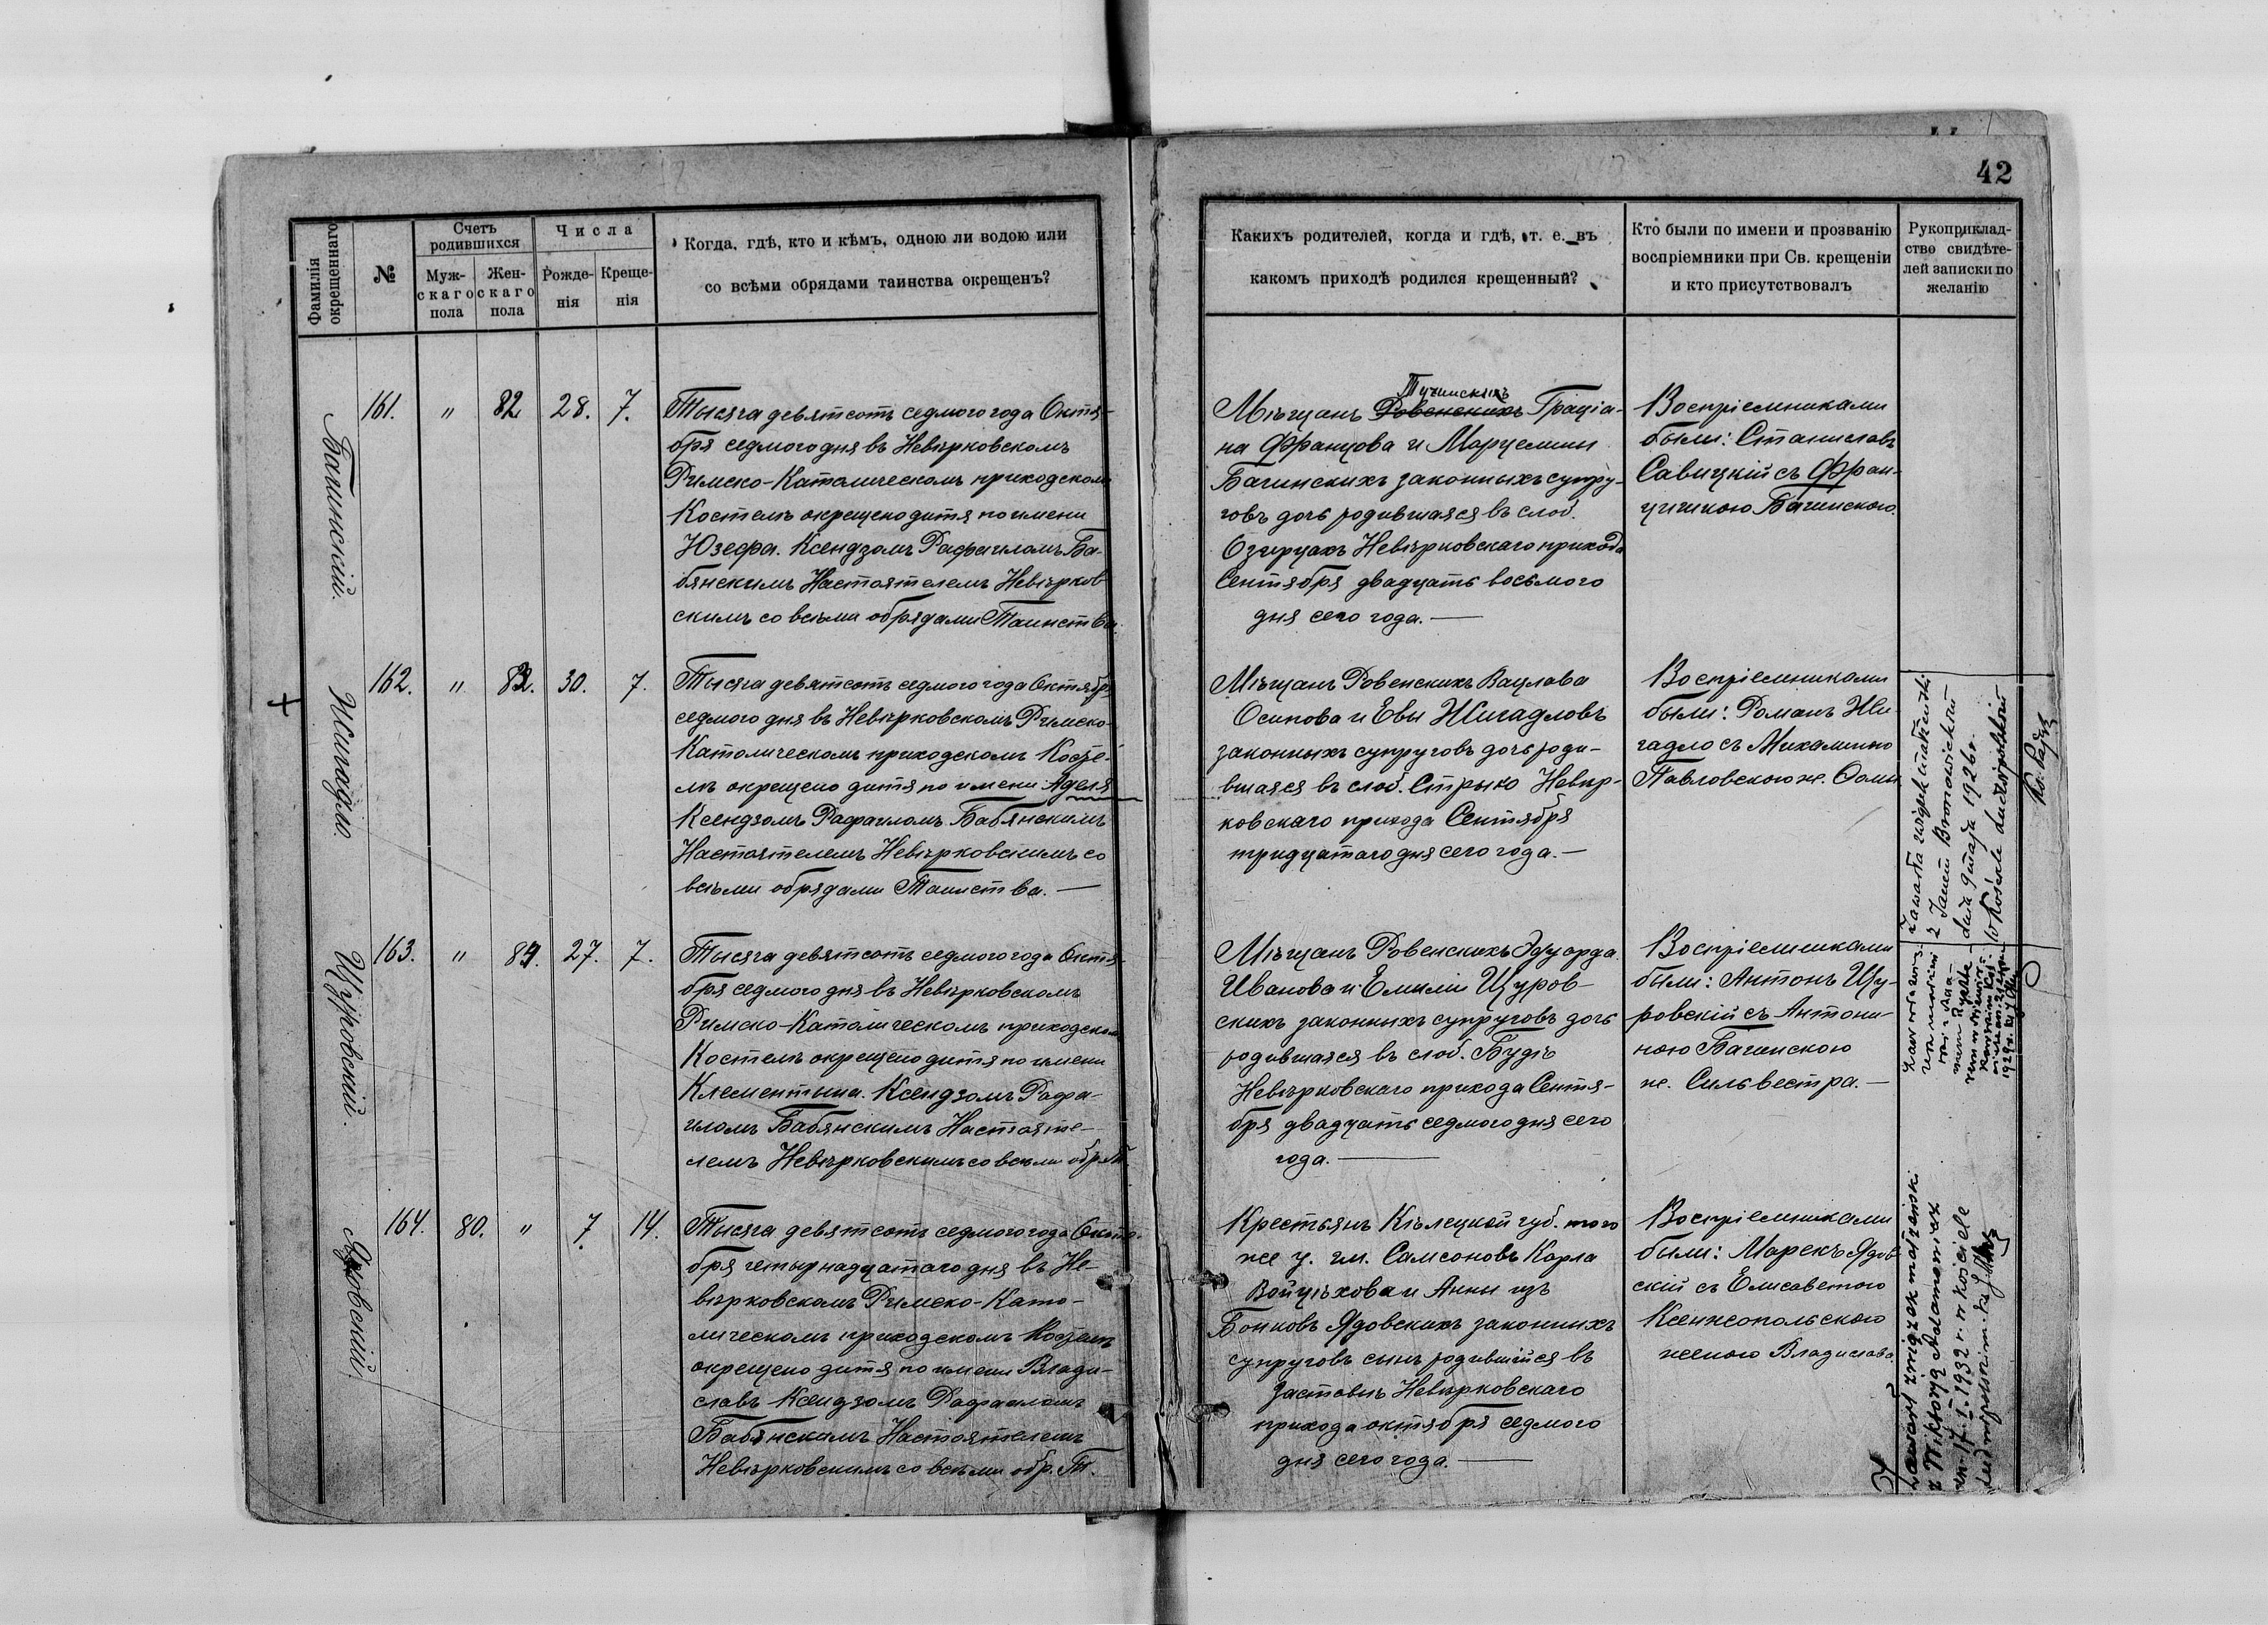 42
Фамилія окрещеннаго
№
Счетъ родившихся
Муж-
скаго
пола
Жен-
скаго
пола
Числа
Рожде-
нія
Креще-
нія
Когда, гдѣ, кто и кѣмъ, одною ли водою или
со всѣми обрядами таинства окрещенъ?
Какихъ родителей, когда и гдѣ, т. е. въ
какомъ приходѣ родился крещенный?
Кто были по имени и прозванію
воспріемники при Св. крещеніи
и кто присутствовалъ
Рукоприклад-
ство свидѣте-
лей записки по
желанію
Багинскій.
161. " 82 28. 7.
Тысяча девятсотъ седмого года Октя-
бря седмого дня въ Невѣрковскомъ
Римско-Католическомъ приходскомъ
Костелѣ окрещено дитя по имени
Юзефа. Ксендзомъ Рафаиломъ Ба-
бянскимъ Настоятелемъ Невѣрков-
скимъ со всѣми обрядами Таинства.
Тучинскихъ
Мѣщанъ Ровенскихъ Граціа-
на Францова и Марцелины
Багинскихъ законныхъ супру-
говъ дочь родившаяся въ слоб.
Озирцахъ Невѣрковскаго прихода
Сентября двадцать восьмого
дня сего года.
Воспріемниками
были: Станиславъ
Савицкій съ Фран-
цишкою Багинскою.
Жигадло.
162. " 83. 30. 7.
Тысяча девятсотъ седмого года Октября
седмого дня въ Невѣрковскомъ Римско-
Католическомъ приходскомъ Косте-
лѣ окрещено дитя по имени Аделя
Ксендзомъ Рафаиломъ Бабянскимъ
Настоятелемъ Невѣрковскимъ со
всѣми обрядами Таинства.
Мѣщанъ Ровенскихъ Вацлава
Осипова и Евы Жигадловъ
законныхъ супруговъ дочь роди-
вшаяся въ слоб. Стрыю Невѣр-
ковскаго прихода Сентября
тридцатаго дня сего года.
Воспріемниками
были: Романъ Жи-
гадло съ Михалиною
Павловскою ж. Фомы
Zawarła związek małżeński
z Janem Bronowickim
dnia 9 maja 1926 r.
w kościele Ludwipolskim
Ks.
Щуровскій.
163. " 84. 27. 7.
Тысяча девятсотъ седмого года Октя-
бря седмого дня въ Невѣрковскомъ
Римско-Католическомъ приходскомъ
Костелѣ окрещено дитя по имени
Клементына. Ксендзомъ Рафа-
иломъ Бабянскимъ Настояте-
лемъ Невѣрковскимъ со всѣми обр. Т.
Мѣщанъ Ровенскихъ Эдуарда
Иванова и Емиліи Щуров-
скихъ законныхъ супруговъ дочь
родившаяся въ слоб. Будѣ
Невѣрковскаго прихода Сентя-
бря двадцать седмого дня сего
года.
Воспріемниками
были: Антонъ Щу-
ровскій съ Антони-
ною Багинскою
ж. Сильвестра.
1929 r.
Ядовскій.
164. 80. " 7. 14.
Тысяча девятсотъ седмого года Октя-
бря четырнадцатаго дня въ Не-
вѣрковскомъ Римско-Като-
лическомъ приходскомъ Костелѣ
окрещено дитя по имени Влади-
славъ Ксендзомъ Рафаиломъ
Бабянскимъ Настоятелемъ
Невѣрковскимъ со всѣми обр. Т.
Крестьянъ Кѣлецкой губ. того
же у. гм. Самсоновъ Карла
Войцѣхова и Анны изъ
Бонковъ Ядовскихъ законныхъ
супруговъ сынъ родившійся въ
Заставьи Невѣрковскаго
прихода октября седмого
дня сего года.
Воспріемниками
были: Марекъ Ядов-
скій съ Елисаветою
Ксенжопольскою
женою Владислава.
Zawarł związek małżeński
z Wiktorją Adamowicz
dn. 17.I.1932 r. w kościele
Ludwipolskim.